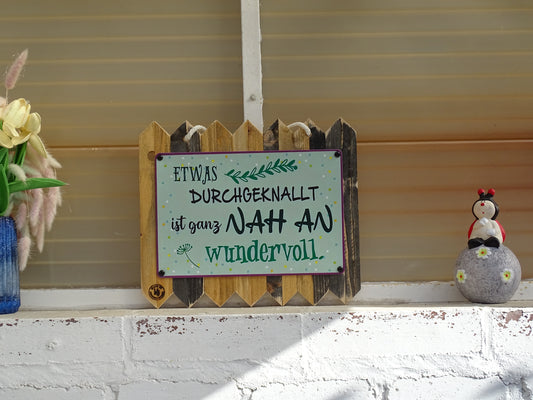 ETWAS
DURCHGEKNALLT
ist ganz NAH AN
wundervoll.